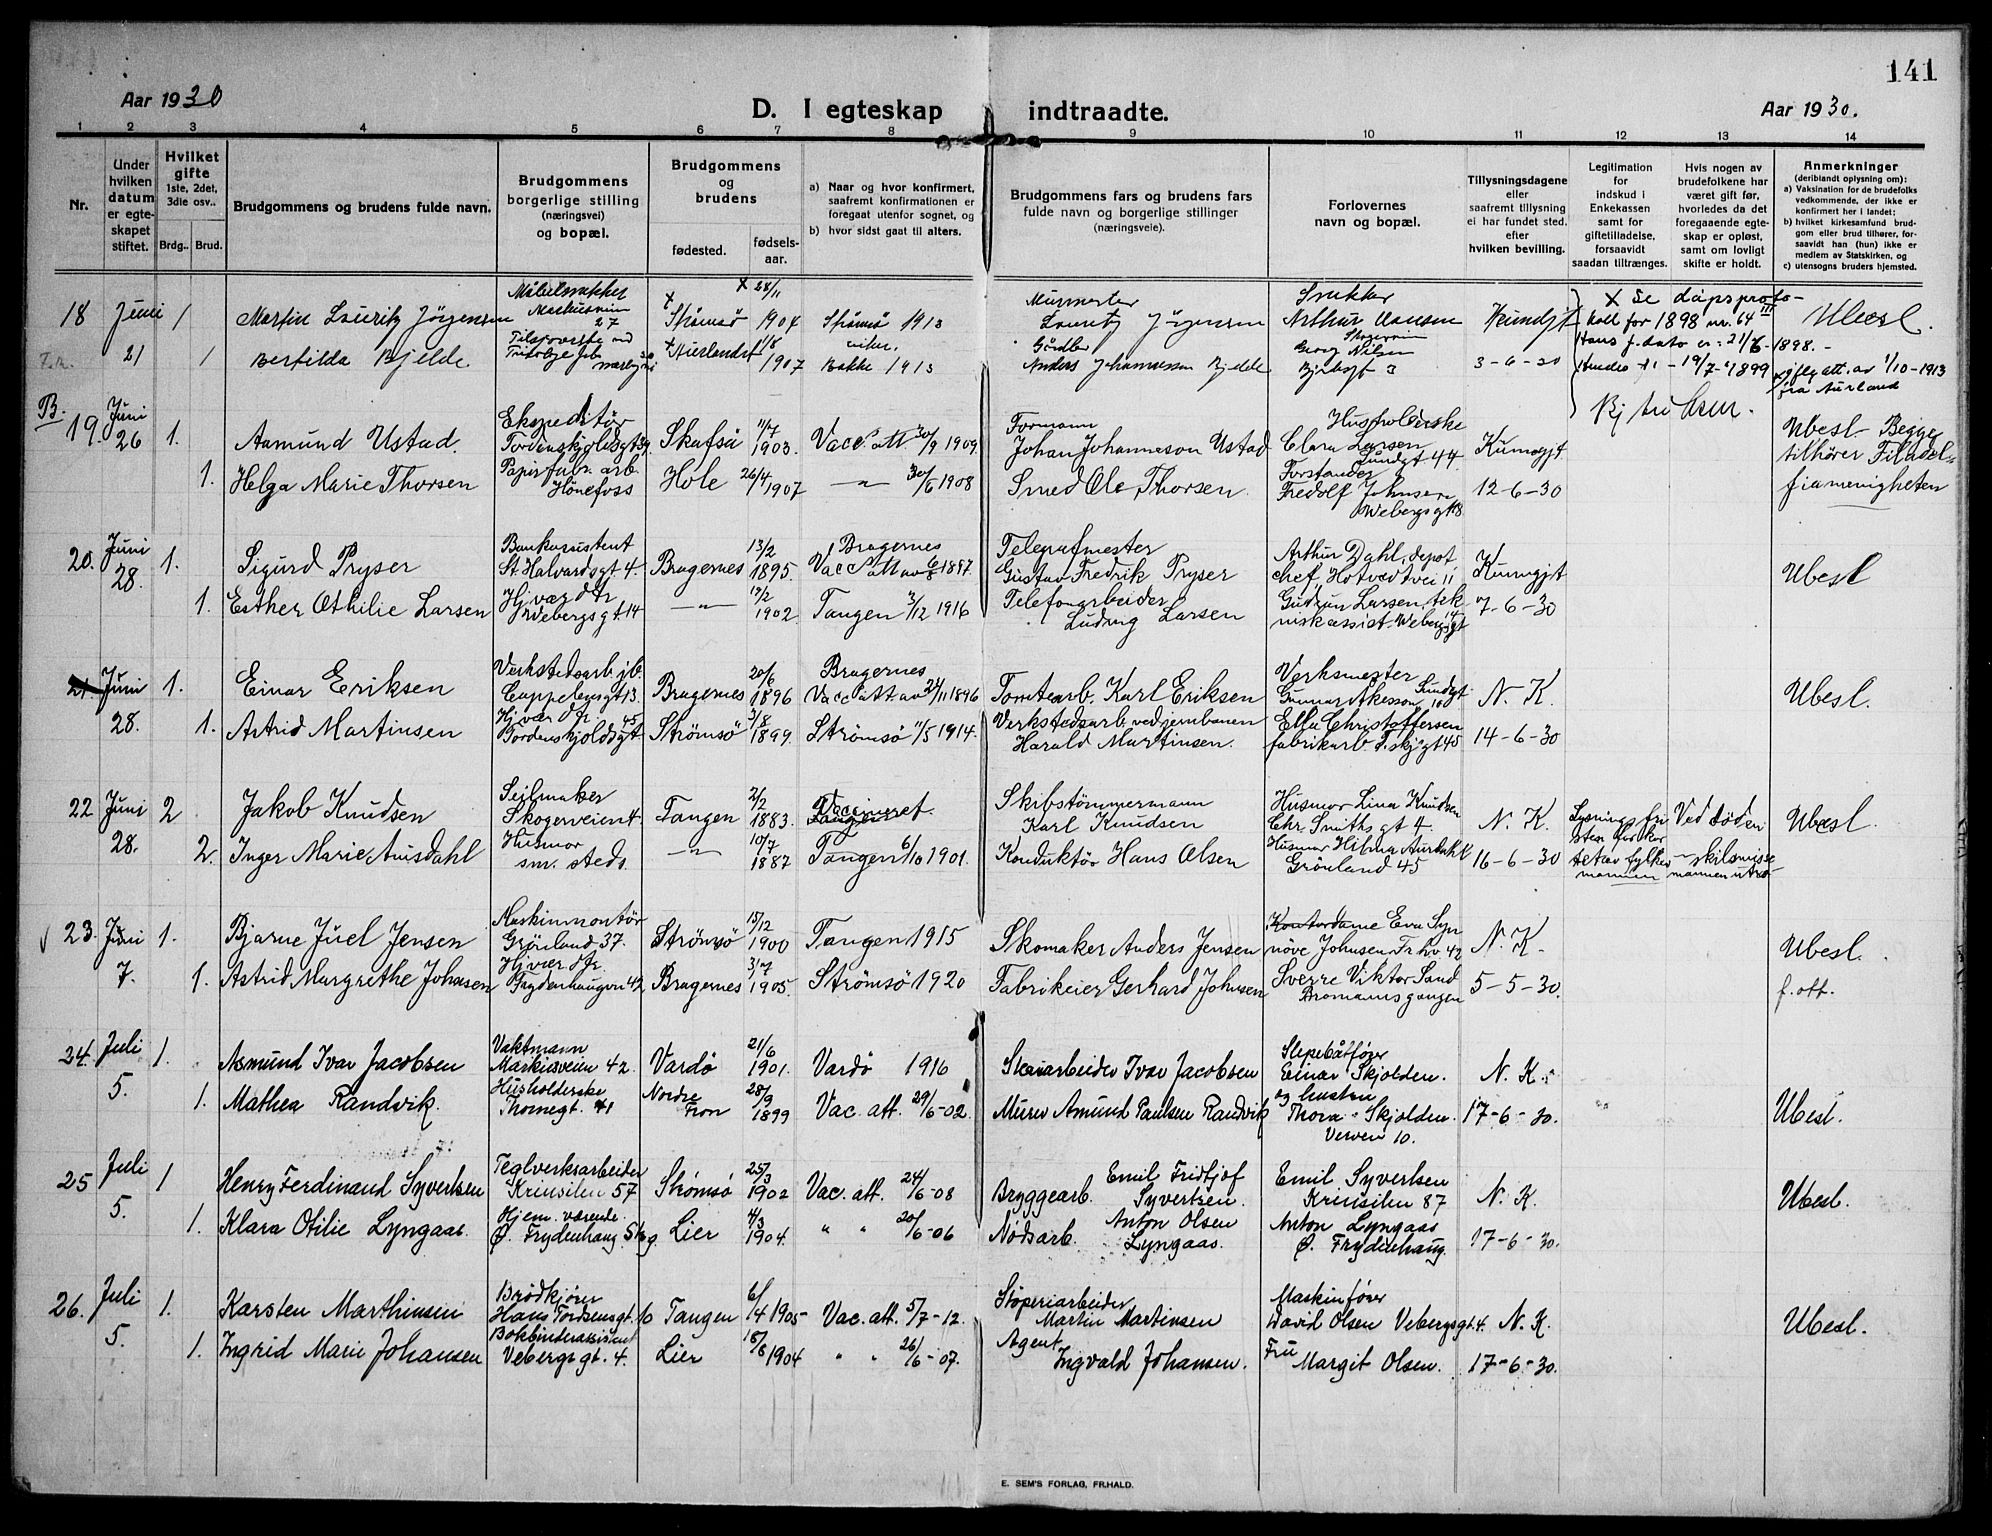 141
Aar 1930
D. I egteskap indtraadte.
Aar 1930.
1 2 3 4 5 6 7 8 9 10 11 12 13 14
Nr.
Under hvilken datum er egteskapet stiftet.
Hvilket gifte 1ste, 2det, 3die osv..
Brdg.. Brud.
Brudgommens og brudens fulde navn.
Brudgommens borgerlige stilling (næringsvei) og bopæl.
Brudgommens og brudens
fødested. fødselsaar.
a) Naar og hvor konfirmert, saafremt konfirmationen er foregaat utenfor sognet, og
b) hvor sidst gaat til alters.
Brudgommens fars og brudens fars fulde navn og borgerlige stillinger (næringsveie).
Forlovernes navn og bopæl.
Tillysningsdagene eller saafremt tillysning ei har fundet sted. efter hvilken bevilling.
Legitimation for indskud i Enkekassen samt for giftetilladelse, forsaavidt saadan tiltrænges.
Hvis nogen av brudefolkene har været gift før, hvorledes da det foregaaende egteskap er opløst, samt om lovligt skifte er holdt.
Anmerkninger (deriblandt oplysning om):
a) Vaksination for de brudefolks vedkommende, der ikke er konfirmert her i landet;
b) hvilket kirkesamfund brudgom eller brud tilhører, forsaavidt han (hun) ikke er medlem av Statskirken, og
c) utensogns bruders hjemsted.
18 Juni 1 Martin Lauritz Jörgensen Möbelsnekker 27 Strömsö 28/11 1904 Strömsö 1913 Murmester Lauritz Jörgensen Snekker Arthur Hansen Kundgj. X Se dåpsproto- Ubesl.
koll for 1898 nr. 64
21 1 Bertilda Bjelde Aurlandet 1/8 1907 Bakke 1913 Gårdbr. Anders Johannesson Bjelde Georg Nilsen 3-6-30
Hans f. dato er 21/6 - 1898.-
19/7-1899 att. av 1/10-1913 fra Aurland
B. 19. Juni 26 1. Aamund Ustad. Ekspeditør Tordenskjoldsgt 39 Skafså 11/7 1903. Vacc att 30/9 1909. Formann Johan Johanneson Ustad Husholderske Clara Larsen Lundgt 44. Kunngjt Ubesl. Begge tilhører Filadel-
1. Helga Marie Thorsen Papirfabr. arb. Hönefoss Hole 26/4 1907 —„— 30/6 1908 Smed Ole Thorsen. Forstander Fredolf Johnsen Webergsgt 8 12-6-30 fiamenigheten
20. Juni 28. 1. Sigurd Pryser Bankassistent St. Halvardsgt. 4. Bragernes 13/2 1895. Bragernes Vacc att av 6/8 1897. Telegrafmester Gustav Fredrik Pryser Arthur Dahl, depot chef, Hotvedtvei 11 Kunngjt Ubesl
1. Esther Othilie Larsen Hj. vær. dtr Webergsgt. 14 —„— 12/2 1902. Tangen 3/12 1916 Telefonarbeider Ludvig Larsen Gudrun Larsen, tekniskassist. Webergsgt 14 7-6-30
21. Juni 1. Einar Eriksen Verkstedsarb. jb. Cappelensgt 13. Bragernes 20/6 1896 Bragernes Vacc att av 24/11 1896 Tomtearb. Karl Eriksen Verksmester Gunnar Åkesson Lundgt 10 N. K. Ubesl.
28. 1. Astrid Martinsen Hj. vær. dtr Tordenskjoldsgt 45 Strömsö 3/8 1899. Strømsø 11/5 1914. Verkstedsarb. ved jernbanen Harald Martinsen. Ella Christoffersen fabrikarb T.skj.gt 45 14-6-30
22 Juni 2 Jakob Knudsen Seilmaker Skogerveien 4. Tangen 2/2 1883. Vaccineret. Skibstømmermann Karl Knudsen Husmor Lina Knudsen Chr. Smiths gt 4. N. K. Ved döden Ubesl.
28. 2. Inger Marie Aursdahl Husmor sm. steds. —„— 10/7 1887 Tangen 6/10 1901. Konduktör Hans Olsen Husmor Hilma Aursdahl Grönland 45 16-6-30 - skilsmisse
23. Juni 1. Bjarne Juel Jensen Maskinmontör Grönland 37. Strømsö 15/12 1900 Tangen 1915 Skomaker Anders Jensen Kontordame Eva Synnöve Johnsen, Fr.hv 42 N. K. Ubesl.
7. 1. Astrid Margrethe Johnsen Hj. vær dtr. Frydenhaugvn 42 Bragernes 3/7 1905. Strømsö 1920 Fabrikeier Gerhard Johnsen Sverre Viktor Sand Bromannsgangen 5-5-30. f. att.
24. Juli 1. Asmund Ivar Jacobsen Vaktmann Markusveien 42. Vardö 21/6 1901. Vardö 1916 Skoiarbeider Ivar Jacobsen Slepebåtfører Einar Skjolden. N. K.
5. 1. Mathea Randvik. Husholderske Thornegt. 41 Nordre Fron 28/9 1899 Vac. att. 29/6-02. Murer Amund Paulsen Randvik og hustru Thora Skjolden. Verven 10. 17-6-30. Ubesl.
25 Juli 1 Henry Ferdinand Syvertsen Teglverksarbeider Krinsilen 57 Strömsö 25/3 1902 Vac. att. 24/6-08 Bryggearb. Emil Fridtjof Syvertsen. Emil Syvertsen Krinsilen 87 N. K. Ubesl.
5. 1. Klara Otilie Lyngaas. Hjem. værende. Ø. Frydenhaug. Lier 4/3 1904. „ „ 20/6-06 Nødsarb. Anton Olsen Lyngaas. Anton Lyngaas Ø. Frydenhaug. 17-6-30.
26. Juli 1. Karsten Marthinsen Brødkjører Hans Tordsensgt. 10 Tangen 6/4 1905- Vac. att. 5/7-12. Støperiarbeider Martin Martinsen Maskinfører David Olsen Vebergsgt. 4. N. K. Ubesl.
5. 1. Ingrid Marie Johansen Bokbinderassistent Vebergsgt. 4. Lier 18/8 1904 „ „ 26/6-07. Agent Ingvald Johansen. Fru Margit Olsen. 17-6-30.
E. SEM'S FORLAG, FR.HALD.